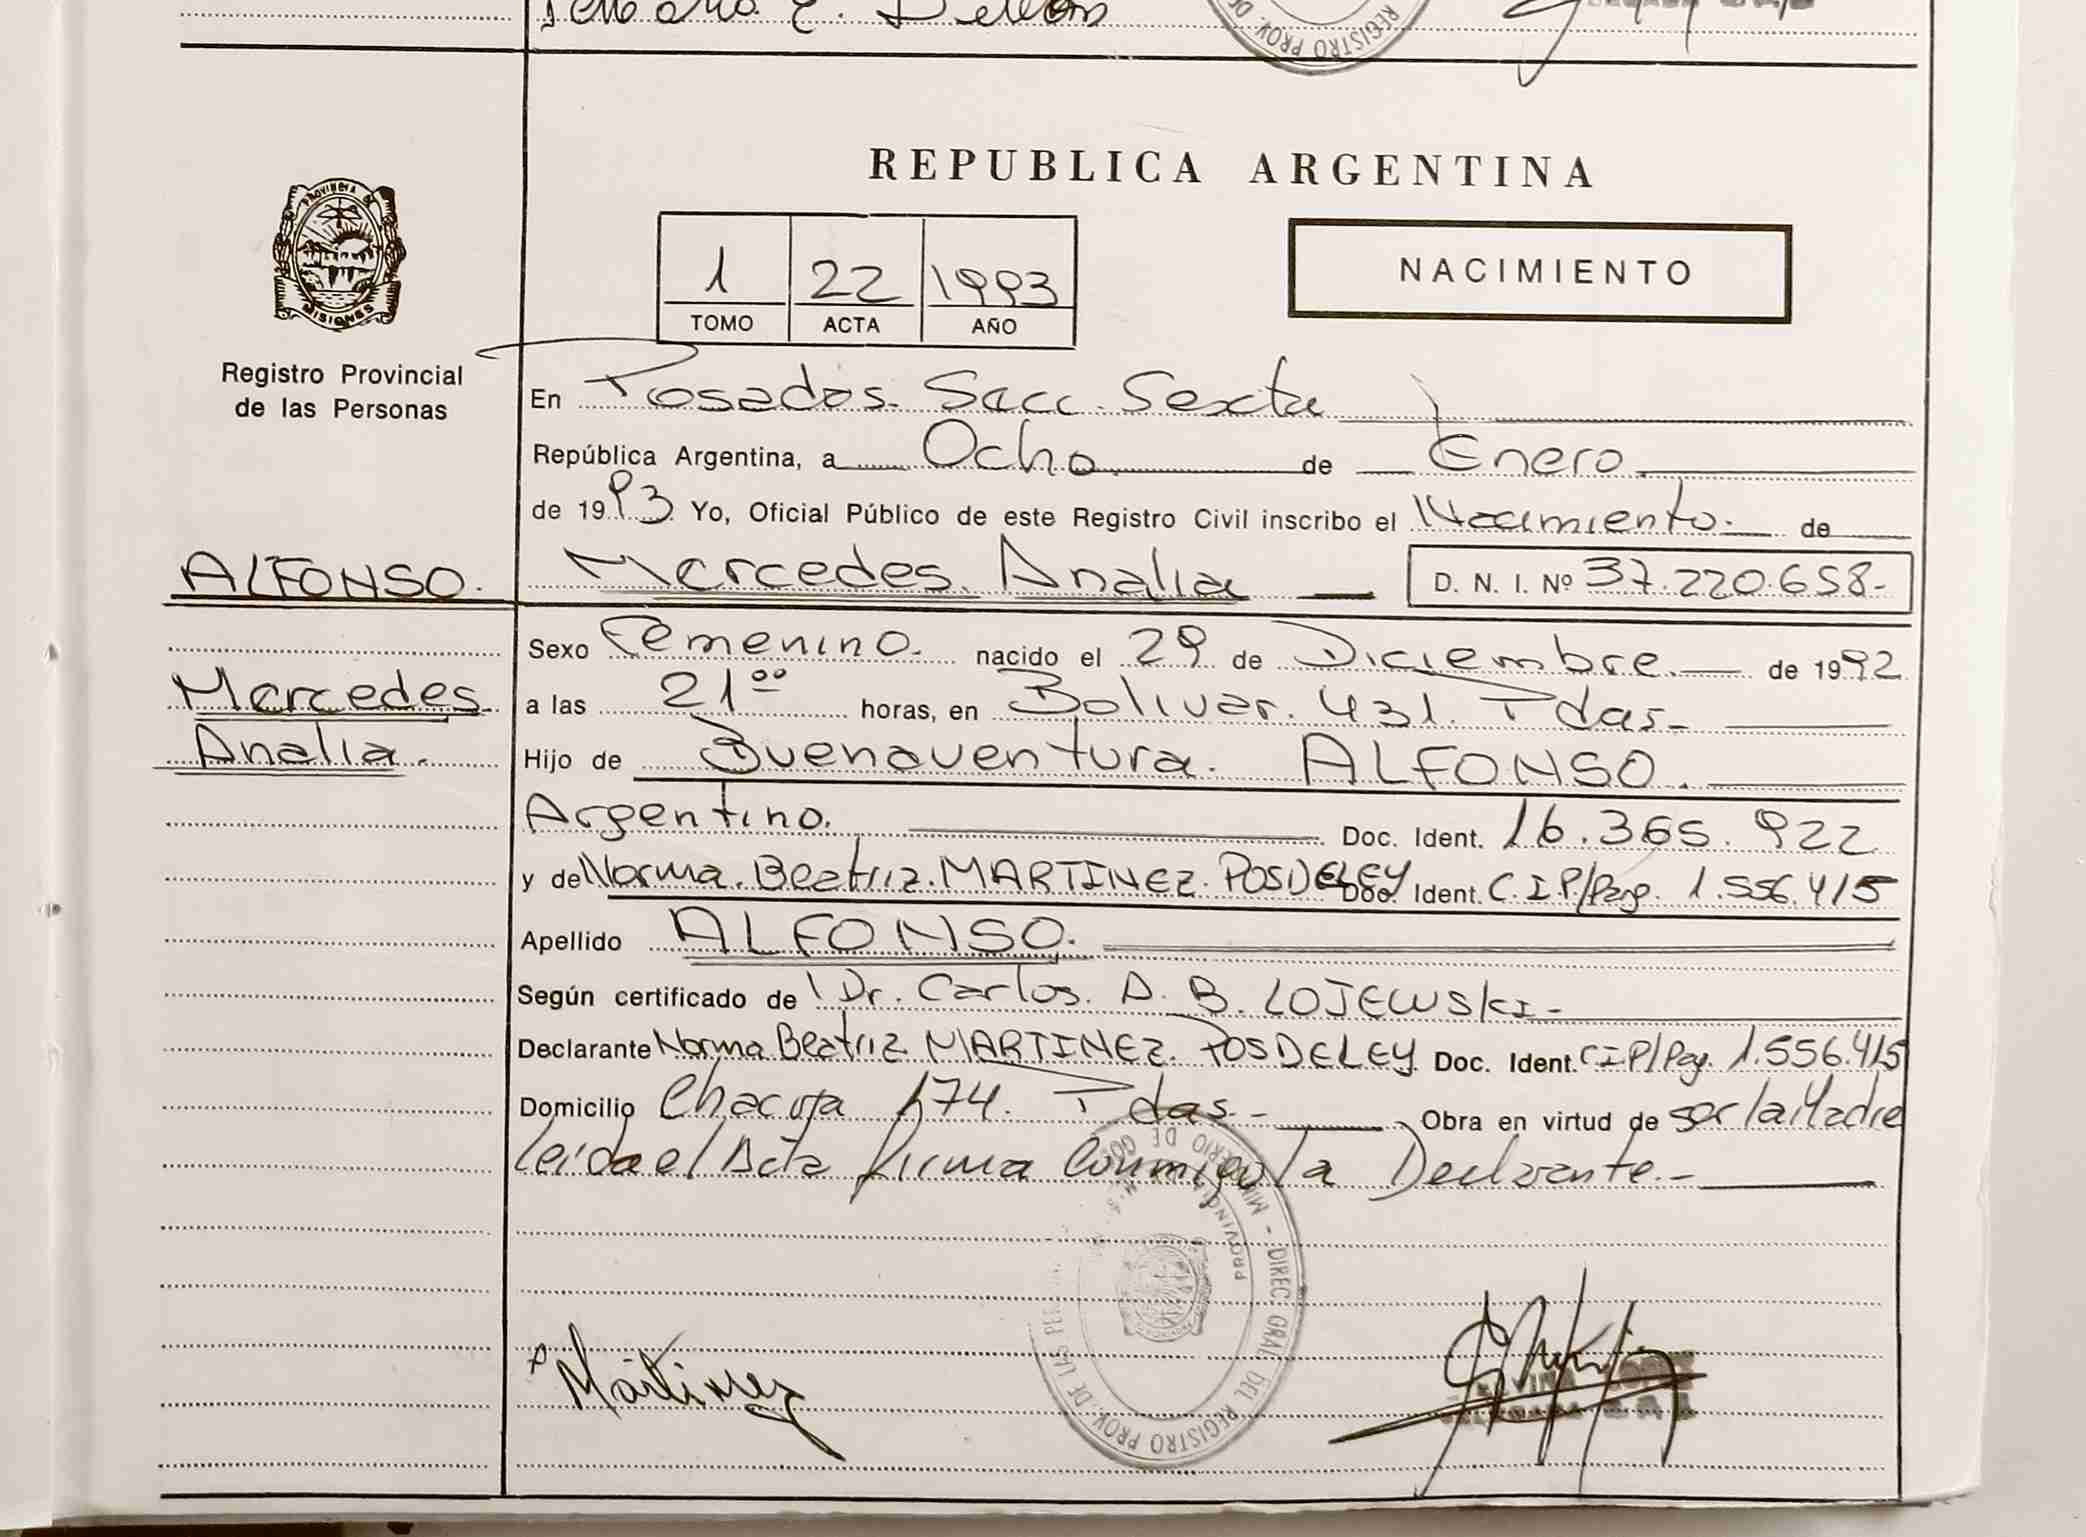 REPUBLICA ARGENTINA
PROVINCIA DE
MISIONES
Registro Provincial
de las Personas
1 22 1993
TOMO ACTA AÑO
NACIMIENTO
En Posadas. Secc. Sexta
República Argentina, a Ocho de Enero.
de 1993 Yo, Oficial Público de este Registro Civil inscribo el Nacimiento. de
ALFONSO.
Mercedes. Analia D. N. I. Nº 37.220.658-
Sexo Femenino. nacido el 29 de Diciembre. de 1992
Mercedes.
a las 21ºº horas, en Bolivar. 431. Pdas-
Analia.
Hijo de Buenaventura. ALFONSO.
Argentino. Doc. Ident. 16.365.922
y de Norma. Beatriz. MARTINEZ. POSDELEY Doc. Ident. C.I.P./Parg. 1.556.415
Apellido ALFONSO.
Según certificado de Dr. Carlos. A. B. LOJEWSKI-
Declarante Norma Beatriz MARTINEZ. POSDELEY Doc. Ident. C.I.P/Pag. 1.556.415
Domicilio 174. Pdas.- Obra en virtud de ser la Madre
leida el Acta firma Conmigo la Declarante.-
MINISTERIO DE GOB. - DIREC. GRAL. DEL REGISTRO PROV. DE LAS PER
PROVINCIA
Martinez
REGISTRO PROV. DE